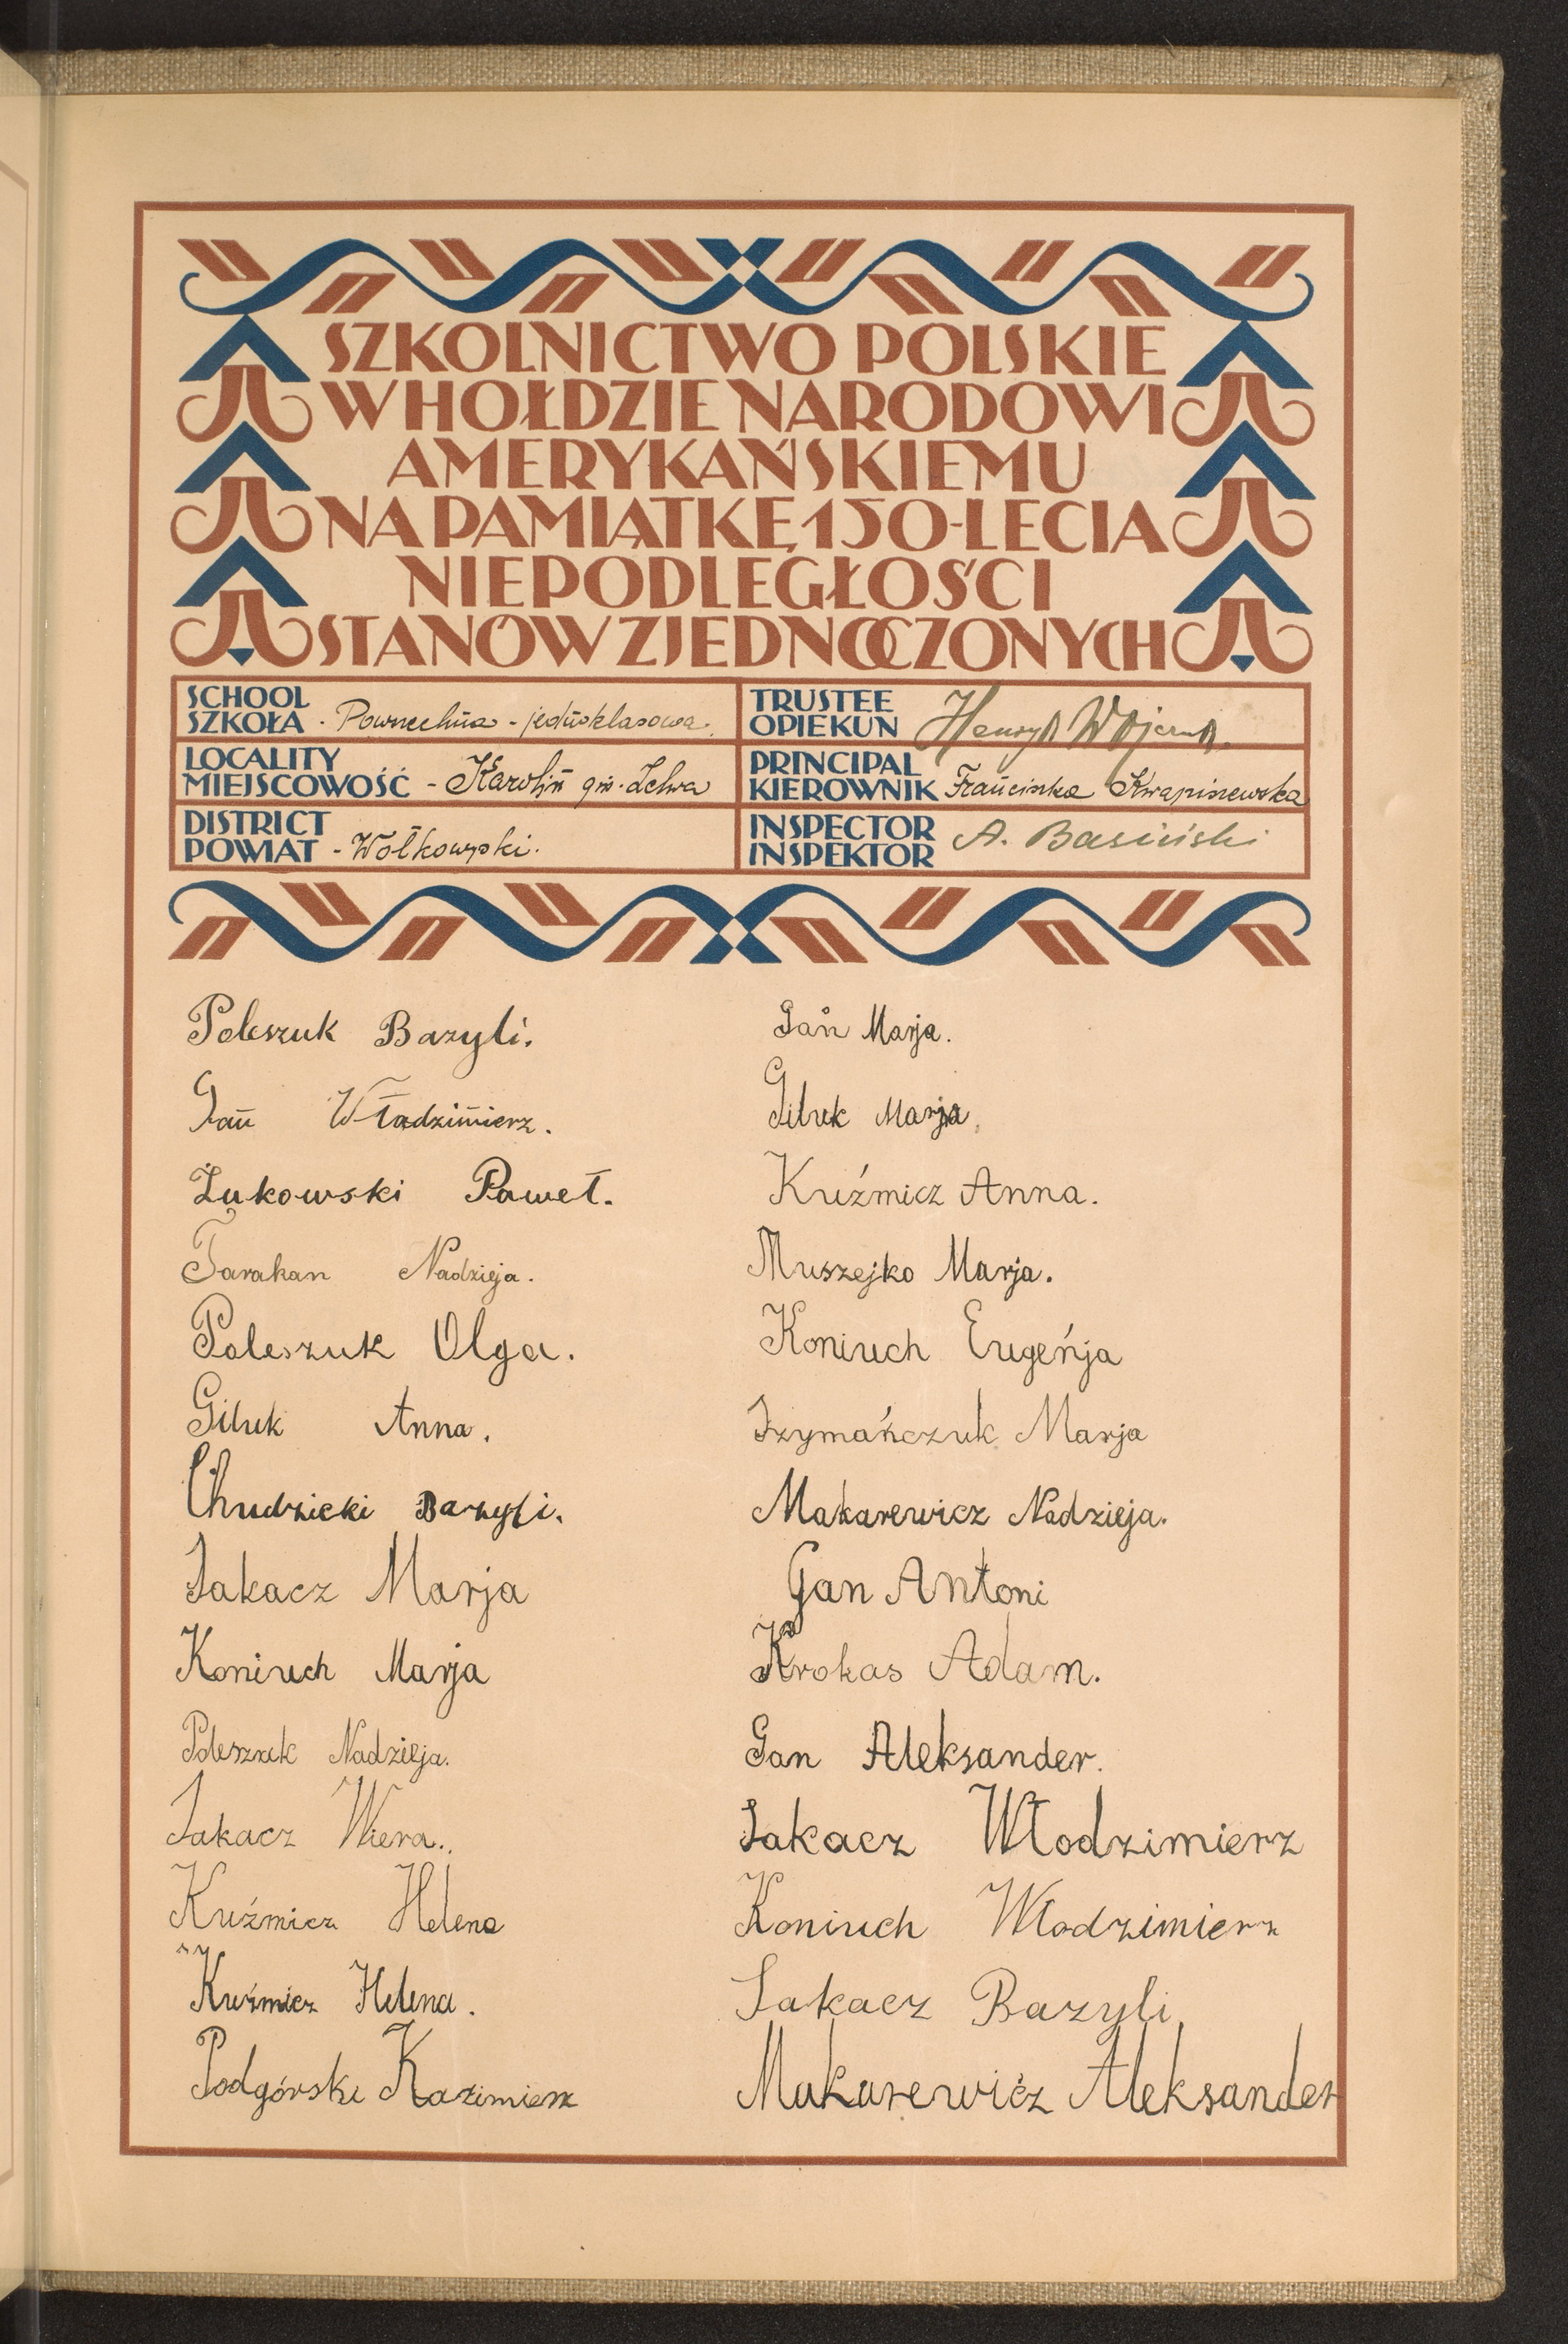 SZKOLNICTWO POLSKIE
W HOŁDZIE NARODOWI
AMERYKAŃSKIEMU
NA PAMIĄTKĘ 150-LECIA
NIEPODLEGŁOŚCI
STANÓW ZJEDNOCZONYCH
SCHOOL
SZKOŁA - Powszechna - jednoklasowa.
LOCALITY
MIEJSCOWOŚĆ - Karolin gm. Zelwa
DISTRICT
POWIAT - Wołkowyski.
TRUSTEE
OPIEKUN Henryk
PRINCIPAL
KIEROWNIK Franciszka Kwapiszewska
INSPECTOR
INSPEKTOR A. Basiński
Poleszuk Bazyli.
Gan Władzimierz.
Żukowski Paweł.
Tarakan Nadzieja.
Poleszuk Olga.
Giluk Anna.
Chudzicki Bazyli.
Sakacz Marja
Koniuch Marja
Poleszuk Nadzieja.
Sakacz Wiera.
Kuźmicz Helena
Kuźmicz Helena.
Podgórski Kazimierz
Gan Marja.
Giluk Marja.
Kuźmicz Anna.
Muszejko Marja.
Koniuch Eugeńja
Szymańczuk Marja
Makarewicz Nadzieja.
Gan Antoni
Krokas Adam.
Gan Aleksander.
Sakacz Włodzimierz
Koniuch Włodzimierz
Sakacz Bazyli
Makarewicz Aleksander